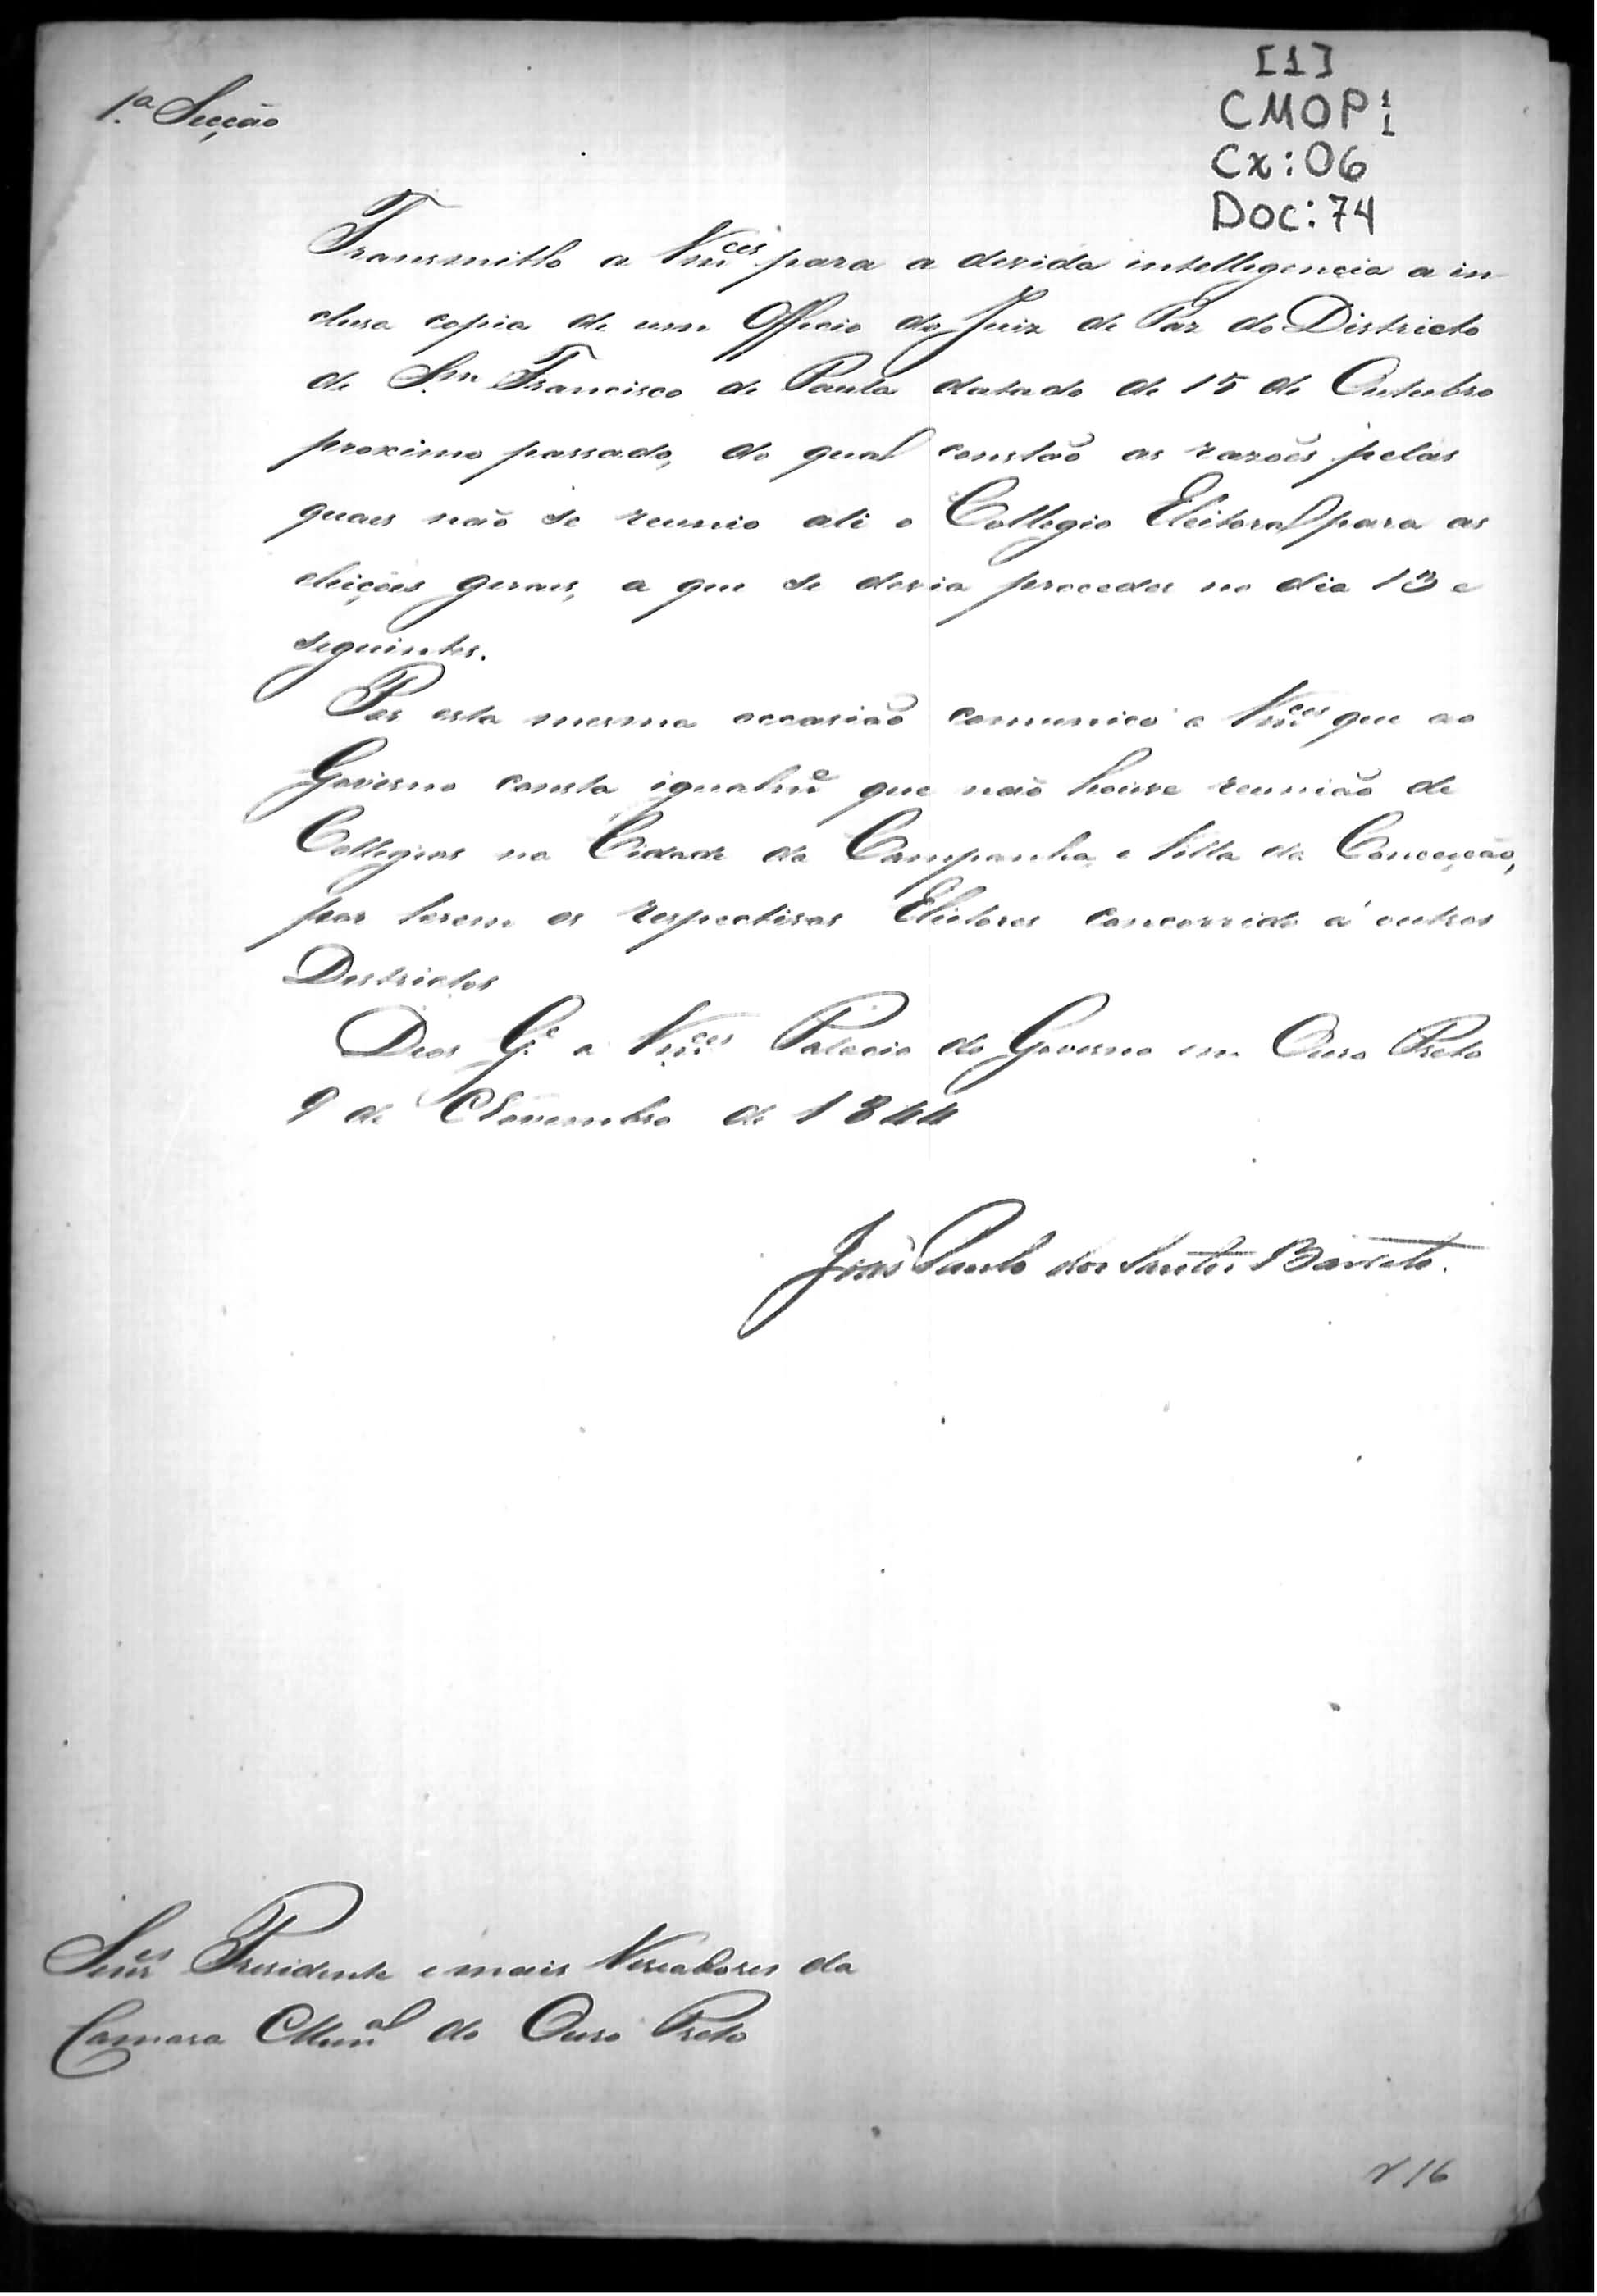 [1]
CMOP 1
1
Cx: 06
Doc: 74
1.ª Secção
Transmitto a Vm.ces para a devida intelligencia a in
clusa copia de um Officio do Juiz de Paz do Districto
de S.m Francisco de Paula datado de 15 de Outubro
proximo passado, do qual constão as razões pelas
quaes não se reunio ali o Collegio Eleitoral para as
eleições geraes, a que se devia proceder no dia 13 e
seguintes.
Por esta mesma occasião communico a Vm.ces que ao
Governo consta igualm.e que não houve reunião de
Collegios na Cidade da Campanha e Villa da Conceição,
por terem os respectivos Eleitores concorrido á outros
Destrictos
Deos G.e a Vm.ces Palacio do Governo em Ouro Preto
9 de Novembro de 1844
José Paulo dos Santos Barreto.
Sen.es Presidente e mais Vereadores da
Camara Mun.al do Ouro Preto